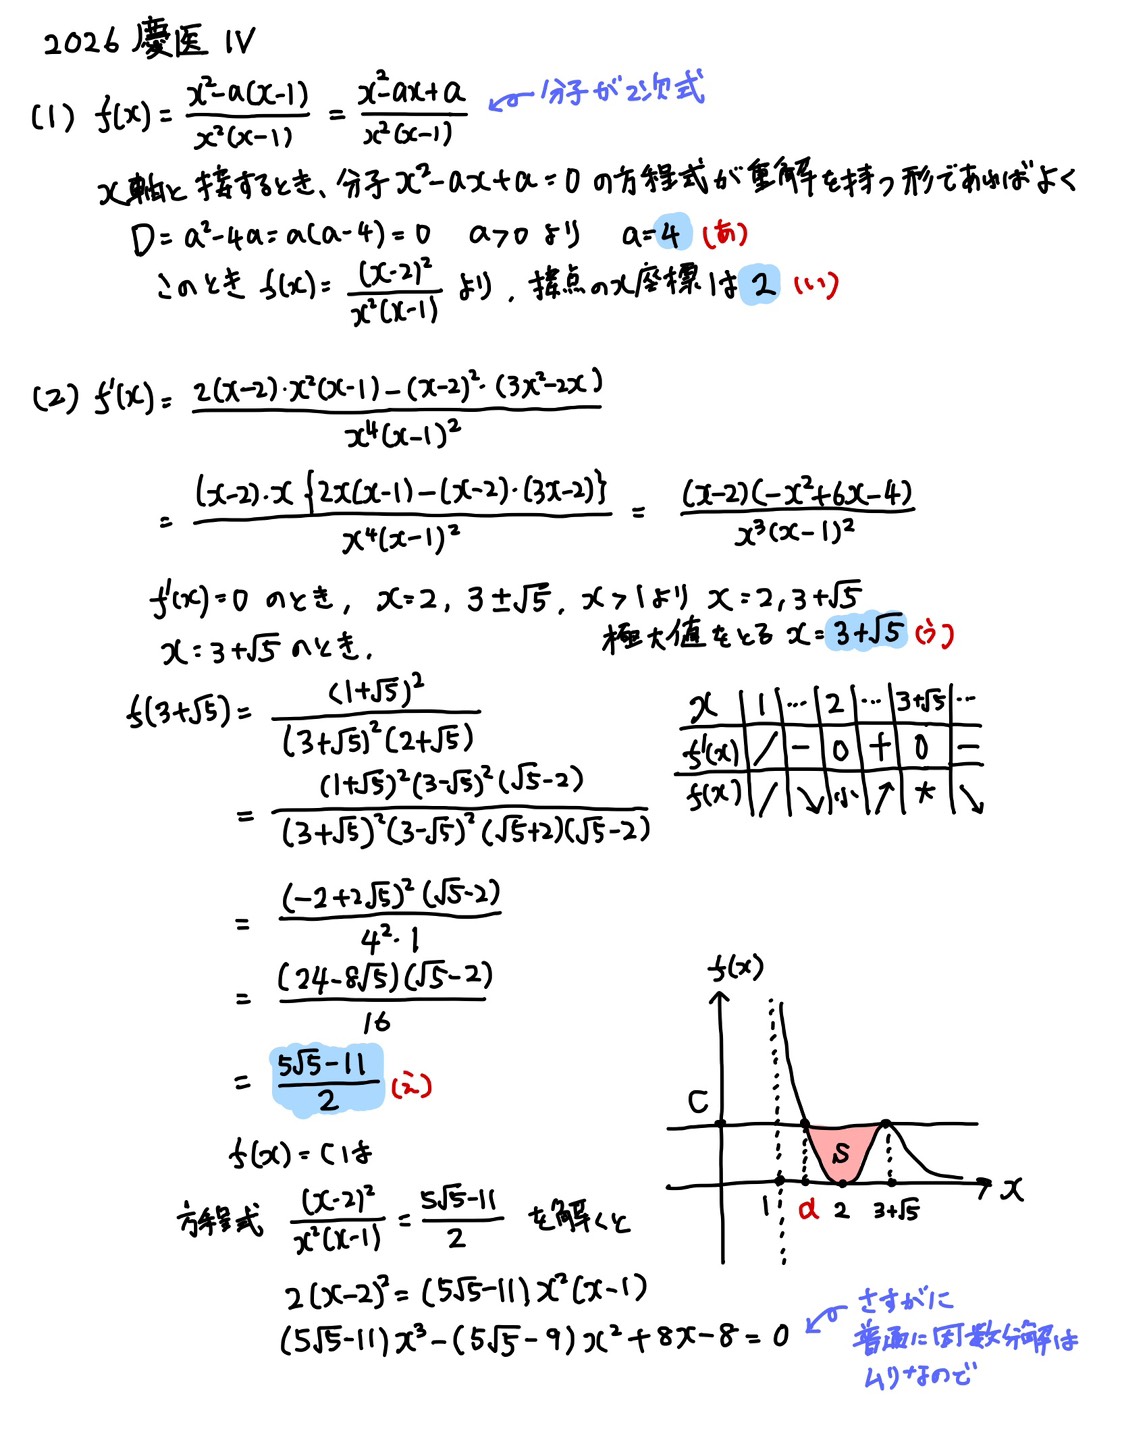 2026 慶医 IV
(1) f(x) = (x²-a(x-1))/(x²(x-1)) = (x²-ax+a)/(x²(x-1)) 分子が2次式
x軸と接するとき、分子x²-ax+a=0の方程式が重解を持つ形であればよく
D=a²-4a=a(a-4)=0 a>0より a=4 (あ)
このとき f(x)=(x-2)²/(x²(x-1)) より, 接点のx座標は 2 (い)
(2) f'(x) = (2(x-2)・x²(x-1)-(x-2)²・(3x²-2x))/(x⁴(x-1)²)
= ((x-2)・x{2x(x-1)-(x-2)・(3x-2)})/(x⁴(x-1)²) = ((x-2)(-x²+6x-4))/(x³(x-1)²)
f'(x)=0 のとき, x=2, 3±√5, x>1より x=2, 3+√5
x=3+√5のとき, 極大値をとる x=3+√5 (う)
f(3+√5) = (1+√5)²/((3+√5)²(2+√5))
= ((1+√5)²(3-√5)²(√5-2))/((3+√5)²(3-√5)²(√5+2)(√5-2))
= ((-2+2√5)²(√5-2))/(4²・1)
= ((24-8√5)(√5-2))/16
= (5√5-11)/2 (え)
x 1 … 2 … 3+√5 …
f'(x) / - 0 + 0 -
f(x) / ↘ 小 ↗ 大 ↘
f(x)
C
S
1 α 2 3+√5 x
f(x)=Cは
方程式 (x-2)²/(x²(x-1)) = (5√5-11)/2 を解くと
2(x-2)²=(5√5-11)x²(x-1)
(5√5-11)x³-(5√5-9)x²+8x-8=0
さすがに
普通に因数分解は
ムリなので